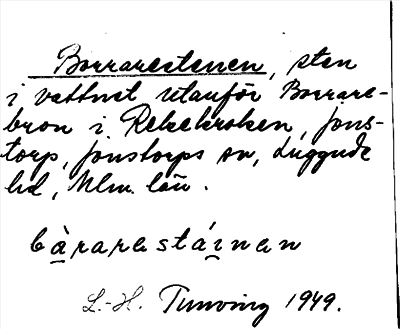 Borrarestenen, sten
i vattnet utanför Borrare-
bron i Rekekroken, Jons-
torp, Jonstorps sn, Luggude
hd, Mlm. län.
bàrarastáinan
L.-H. Tunving 1949.